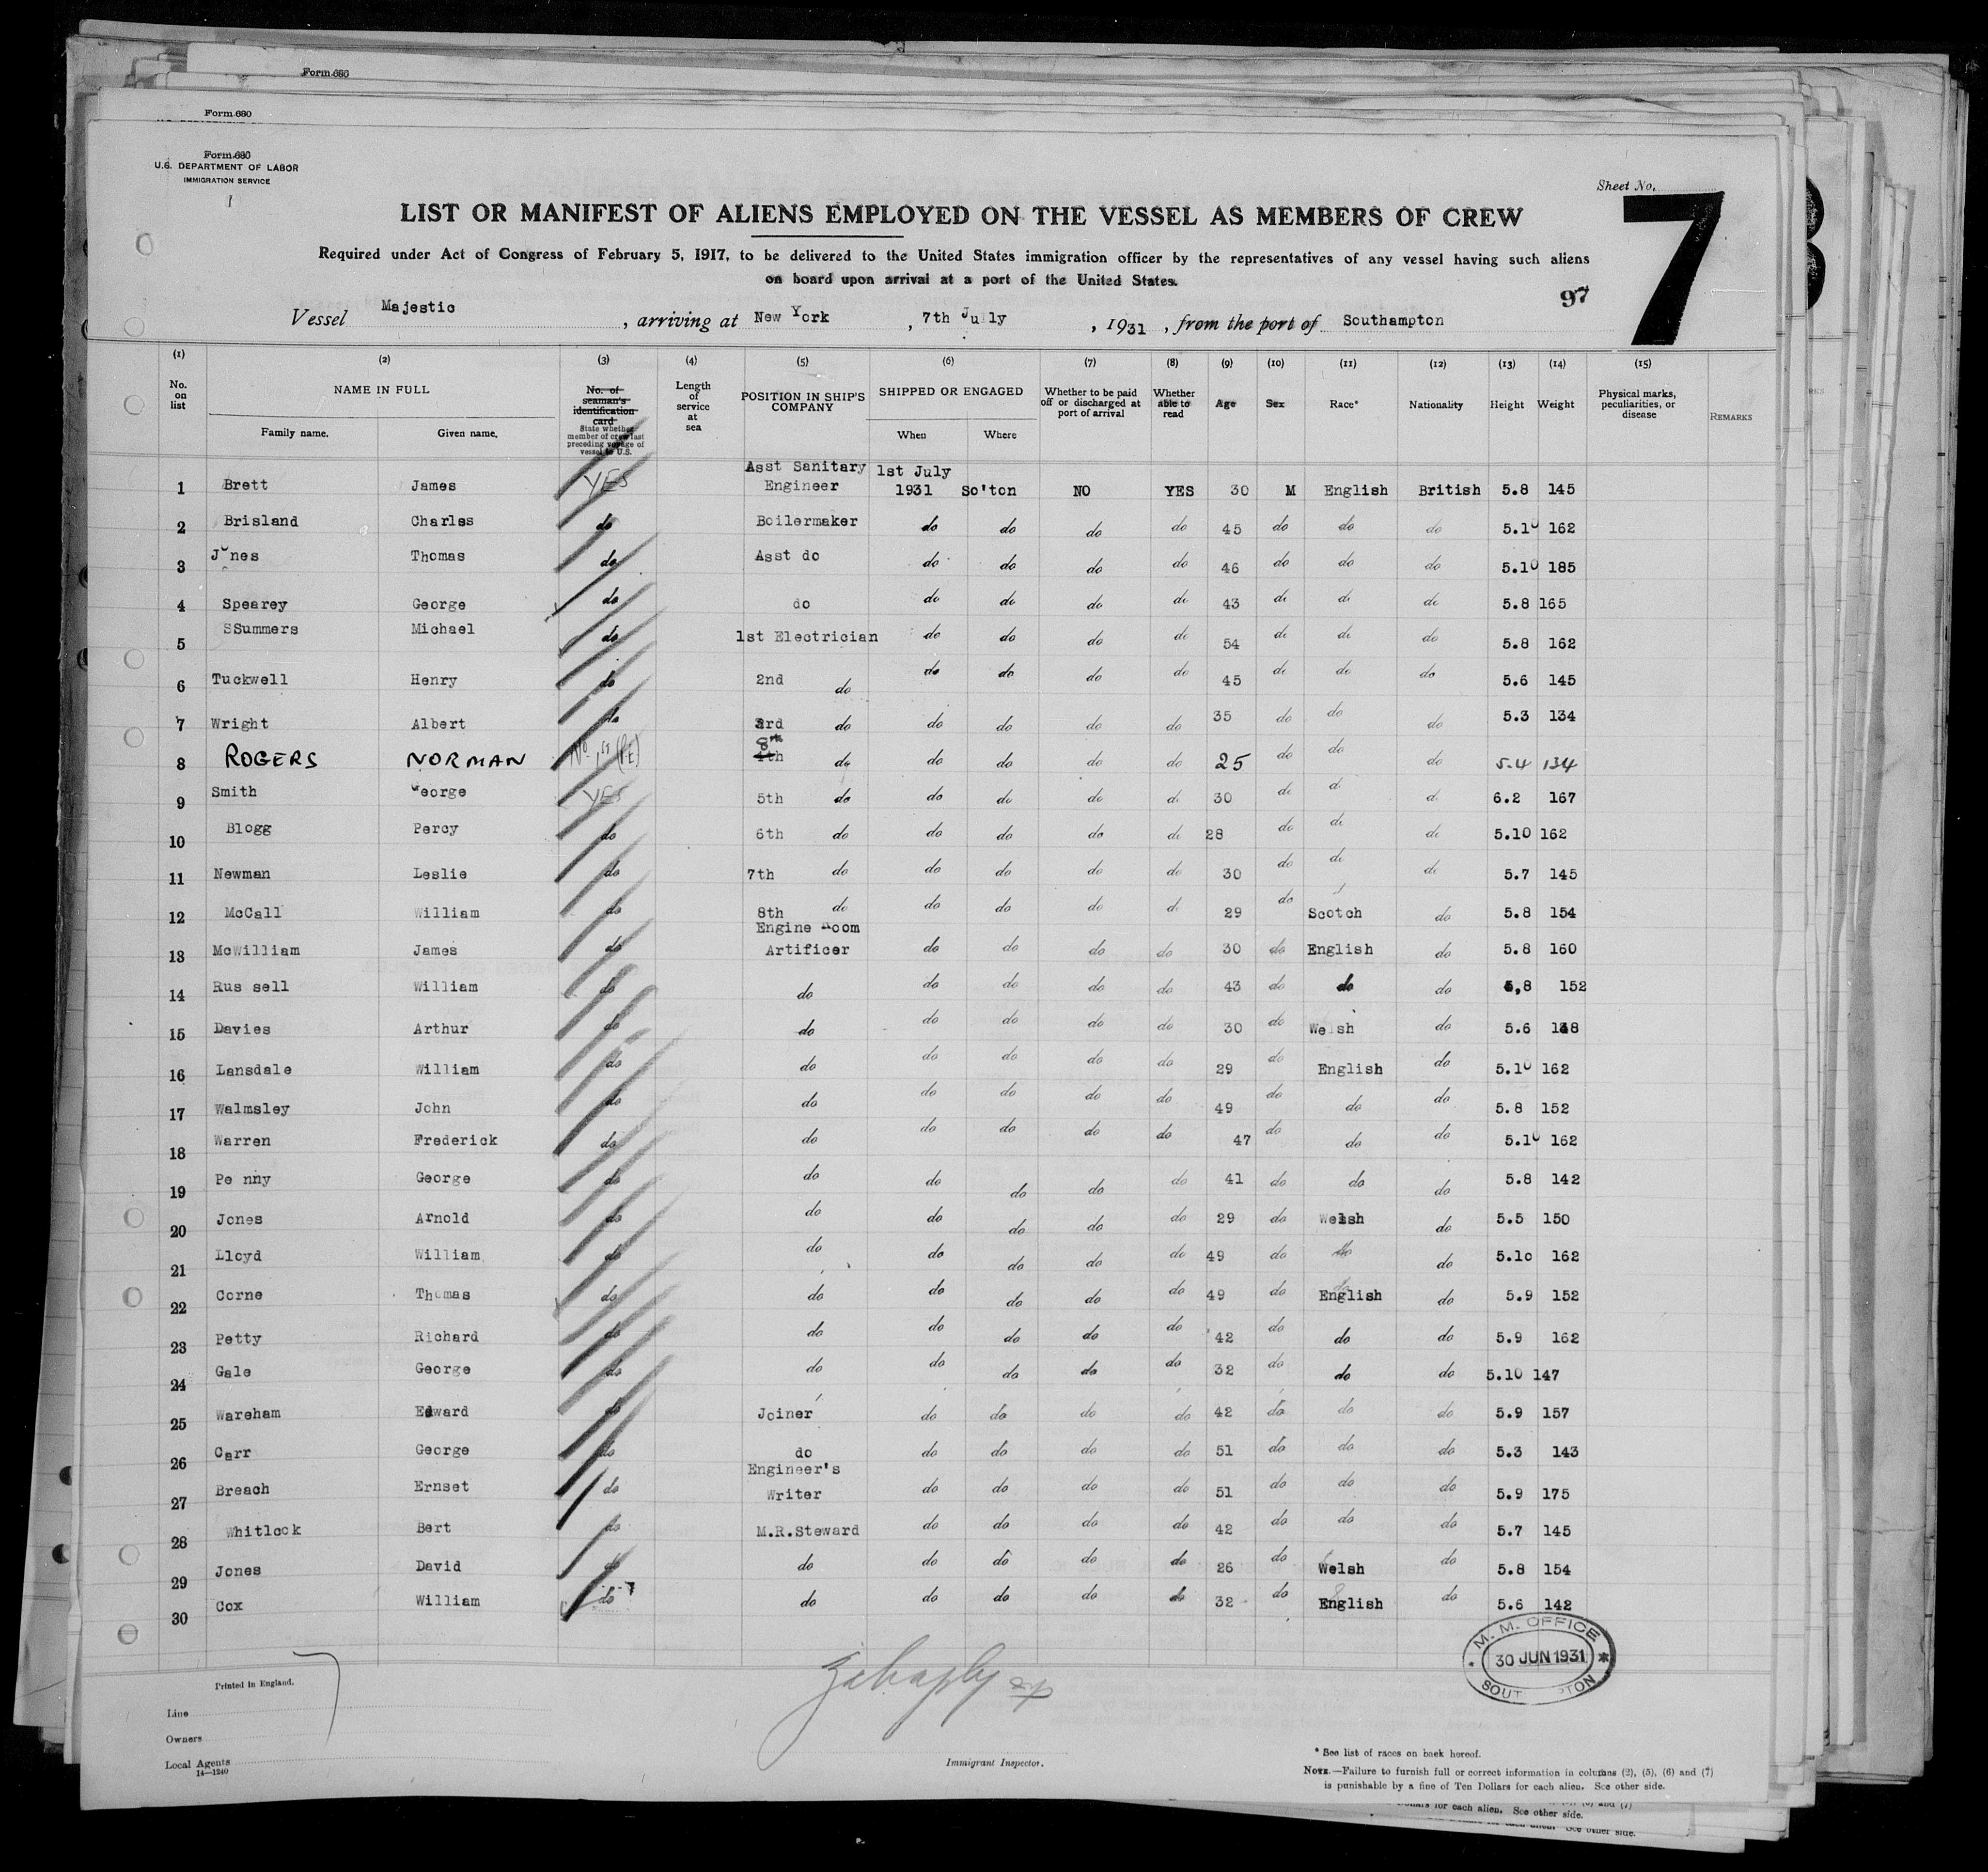 Form 680
Form 680
Form 680
U.S. DEPARTMENT OF LABOR
IMMIGRATION SERVICE
1
Sheet No.
7
LIST OR MANIFEST OF ALIENS EMPLOYED ON THE VESSEL AS MEMBERS OF CREW
Required under Act of Congress of February 5, 1917, to be delivered to the United States immigration officer by the representatives of any vessel having such aliens
on board upon arrival at a port of the United States.
97
Vessel Majestic , arriving at New York , 7th July , 1931 , from the port of Southampton
(1) (2) (3) (4) (5) (6) (7) (8) (9) (10) (11) (12) (13) (14) (15)
No. on list NAME IN FULL Family name. Given name. No. of seaman's identification card State whether member of crew last preceding voyage of vessel to U.S. Length of service at sea POSITION IN SHIP'S COMPANY SHIPPED OR ENGAGED When Where Whether to be paid off or discharged at port of arrival Whether able to read Age Sex Race* Nationality Height Weight Physical marks, peculiarities, or disease REMARKS
1 Brett James YES Asst Sanitary Engineer 1st July 1931 So'ton NO YES 30 M English British 5.8 145
2 Brisland Charles do Boilermaker do do do do 45 do do do 5.10 162
3 Jones Thomas do Asst do do do do do 46 do do do 5.10 185
4 Spearey George do do do do do do 43 do do do 5.8 165
5 SSummers Michael do 1st Electrician do do do do 54 do do do 5.8 162
6 Tuckwell Henry do 2nd do do do do do 45 do do do 5.6 145
7 Wright Albert do 3rd do do do do do 35 do do do 5.3 134
8 ROGERS NORMAN 8th 4th do do do do do 25 do do do 5.4 134
9 Smith George YES 5th do do do do do 30 do do do 6.2 167
10 Blogg Percy do 6th do do do do do 28 do do do 5.10 162
11 Newman Leslie do 7th do do do do do 30 do do do 5.7 145
12 McCall William do 8th do do do do do 29 do Scotch do 5.8 154
13 McWilliam James do Engine Room Artificer do do do do 30 do English do 5.8 160
14 Rus sell William do do do do do do 43 do do do 5,8 152
15 Davies Arthur do do do do do do 30 do Welsh do 5.6 148
16 Lansdale William do do do do do do 29 do English do 5.10 162
17 Walmsley John do do do do do do 49 do do do 5.8 152
18 Warren Frederick do do do do do do 47 do do do 5.10 162
19 Pe nny George do do do do do do 41 do do do 5.8 142
20 Jones Arnold do do do do do do 29 do Welsh do 5.5 150
21 Lloyd William do do do do do do 49 do do do 5.10 162
22 Corne Thomas do do do do do do 49 do English do 5.9 152
23 Petty Richard do do do do do do 42 do do do 5.9 162
24 Gale George do do do do do do 32 do do do 5.10 147
25 Wareham Edward do Joiner do do do do 42 do do do 5.9 157
26 Carr George do do do do do do 51 do do do 5.3 143
27 Breach Ernset do Engineer's Writer do do do do 51 do do do 5.9 175
28 Whitlock Bert do M.R.Steward do do do do 42 do do do 5.7 145
29 Jones David do do do do do do 26 do Welsh do 5.8 154
30 Cox William do do do do do do 32 do English do 5.6 142
M. M. OFFICE
30 JUN 1931
SOUT PTON
Printed in England.
Line
Owners
Local Agents
14—1240
Immigrant Inspector.
* See list of races on back hereof.
NOTE.—Failure to furnish full or correct information in columns (2), (5), (6) and (7)
is punishable by a fine of Ten Dollars for each alien. See other side.
for each alien. See other side.
See other side.